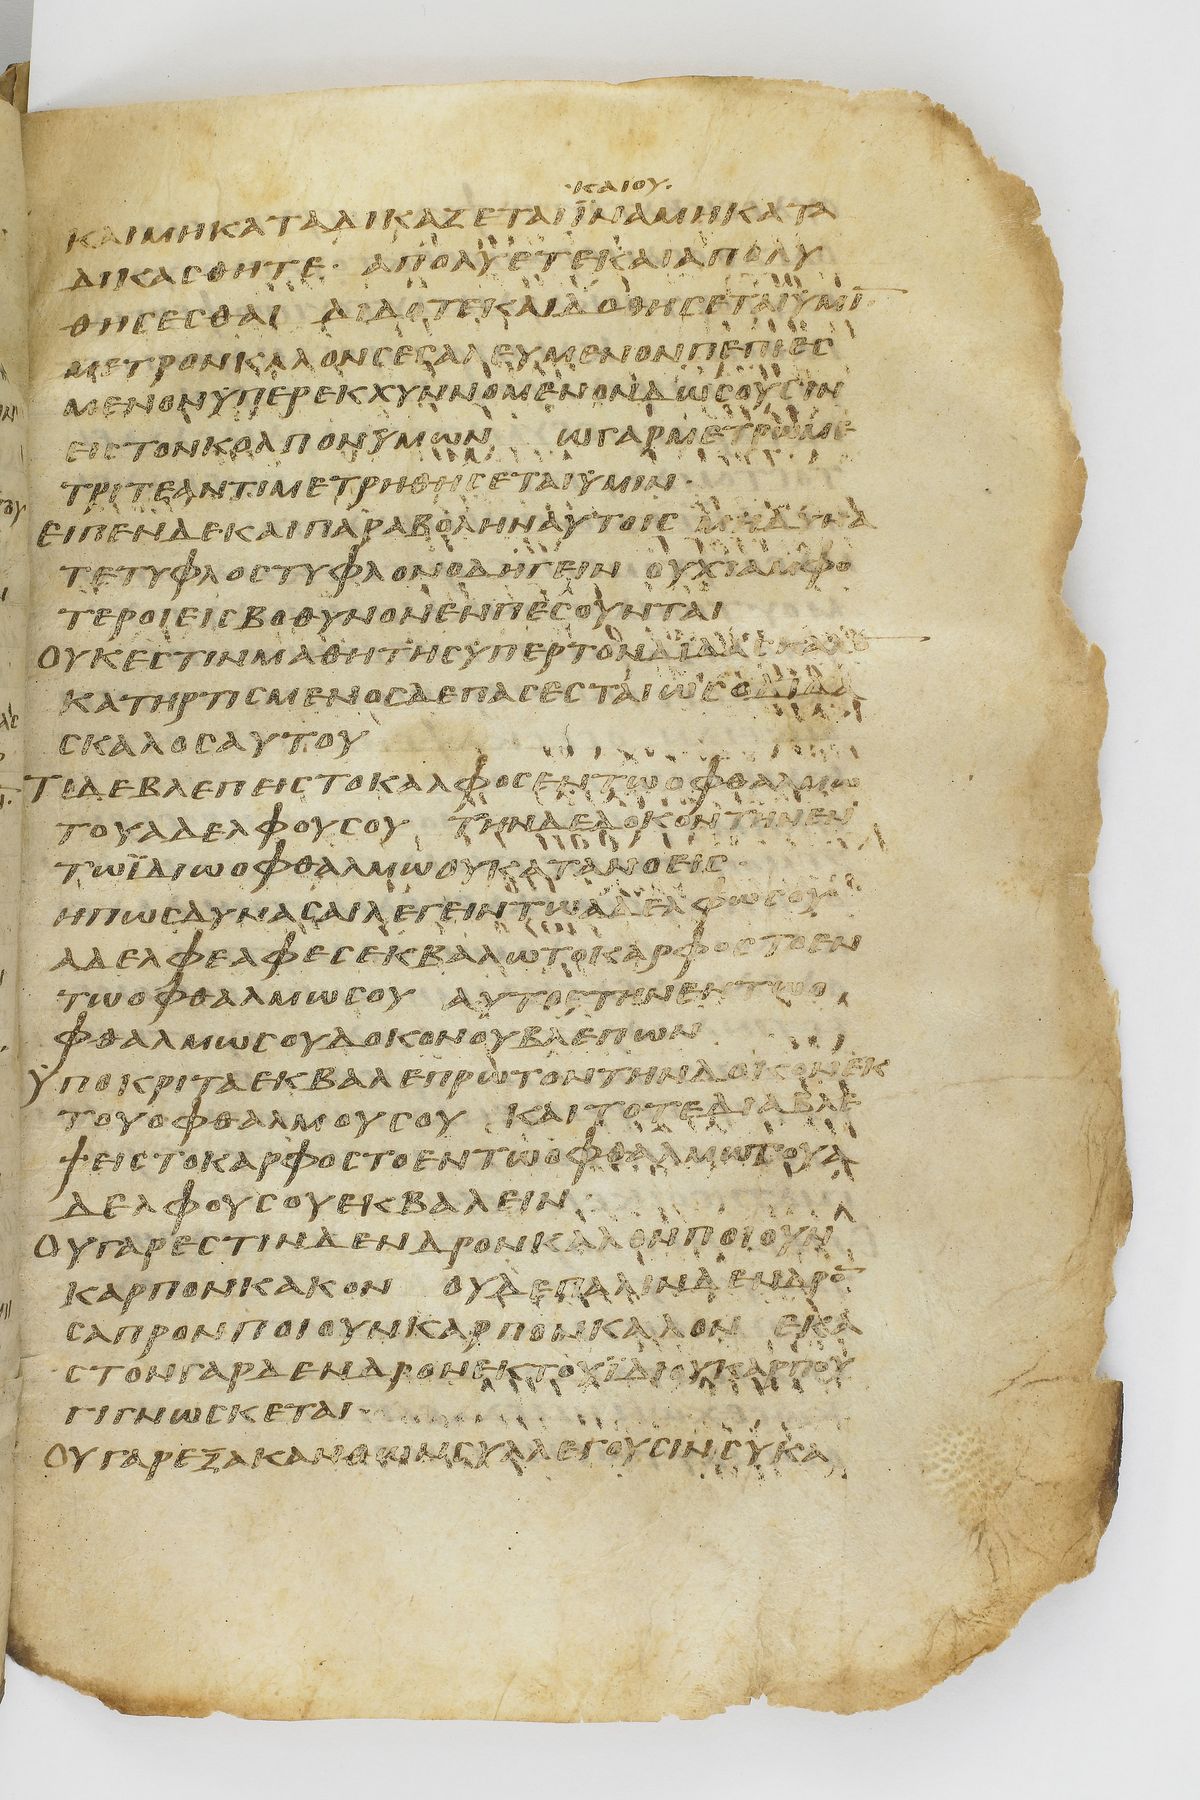 ·ΚΑΙΟΥ·
ΚΑΙΜΗΚΑΤΑΔΙΚΑΖΕΤΑΙΪΝΑΜΗΚΑΤΑ
ΔΙΚΑϹΘΗΤΕ· ΑΠΟΛΥΕΤΕΚΑΙΑΠΟΛΥ
ΘΗϹΕϹΘΑΙ ΔΙΔΟΤΕΚΑΙΔΟΘΗϹΕΤΑΙΫΜΙ̅
ΜΕΤΡΟΝΚΑΛΟΝϹΕϹΑΛΕΥΜΕΝΟΝΠΕΠΙΕϹ
ΜΕΝΟΝΫΠΕΡΕΚΧΥΝΝΟΜΕΝΟΝΔΩϹΟΥϹΙΝ
ΕΙϹΤΟΝΚΟΛΠΟΝΫΜΩΝ ΩΓΑΡΜΕΤΡΩΜΕ
ΤΡΙΤΕΑΝΤΙΜΕΤΡΗΘΗϹΕΤΑΙΫΜΙΝ·
ΕΙΠΕΝΔΕΚΑΙΠΑΡΑΒΟΛΗΝΑΥΤΟΙϹ ΜΗΔΥΝΑ
ΤΕΤΥΦΛΟϹΤΥΦΛΟΝΟΔΗΓΕΙΝ ΟΥΧΙΑΜΦΟ
ΤΕΡΟΙΕΙϹΒΟΘΥΝΟΝΕΝΠΕϹΟΥΝΤΑΙ
ΟΥΚΕϹΤΙΝΜΑΘΗΤΗϹΫΠΕΡΤΟΝΔΙΔΑϹΚΑΛΟ̅
ΚΑΤΗΡΤΙϹΜΕΝΟϹΔΕΠΑϹΕϹΤΑΙΩϹΟΔΙΔΑ
ϹΚΑΛΟϹΑΥΤΟΥ
ΤΙΔΕΒΛΕΠΕΙϹΤΟΚΑΡΦΟϹΕΝΤΩΟΦΘΑΛΜΩ
ΤΟΥΑΔΕΛΦΟΥϹΟΥ ΤΗΝΔΕΔΟΚΟΝΤΗΝΕΝ
ΤΩΪΔΙΩΟΦΘΑΛΜΩΟΥΚΑΤΑΝΟΕΙϹ·
ΗΠΩϹΔΥΝΑϹΑΙΛΕΓΕΙΝΤΩΑΔΕΛΦΩϹΟΥ
ΑΔΕΛΦΕΑΦΕϹΕΚΒΑΛΩΤΟΚΑΡΦΟϹΤΟΕΝ
ΤΩΟΦΘΑΛΜΩϹΟΥ ΑΥΤΟϹΤΗΝΕΝΤΩΟ
ΦΘΑΛΜΩϹΟΥΔΟΚΟΝΟΥΒΛΕΠΩΝ
ΫΠΟΚΡΙΤΑΕΚΒΑΛΕΠΡΩΤΟΝΤΗΝΔΟΚΟΝΕΚ
ΤΟΥΟΦΘΑΛΜΟΥϹΟΥ ΚΑΙΤΟΤΕΔΙΑΒΛΕ
ΨΕΙϹΤΟΚΑΡΦΟϹΤΟΕΝΤΩΟΦΘΑΛΜΩΤΟΥΑ
ΔΕΛΦΟΥϹΟΥΕΚΒΑΛΕΙΝ
ΟΥΓΑΡΕϹΤΙΝΔΕΝΔΡΟΝΚΑΛΟΝΠΟΙΟΥΝ
ΚΑΡΠΟΝΚΑΚΟΝ ΟΥΔΕΠΑΛΙΝΔΕΝΔΡΟ̅
ϹΑΠΡΟΝΠΟΙΟΥΝΚΑΡΠΟΝΚΑΛΟΝ ΕΚΑ
ϹΤΟΝΓΑΡΔΕΝΔΡΟΝΕΚΤΟΥΪΔΙΟΥΚΑΡΠΟΥ
ΓΙΓΝΩϹΚΕΤΑΙ·
ΟΥΓΑΡΕΞΑΚΑΝΘΩΝϹΥΛΛΕΓΟΥϹΙΝϹΥΚΑ